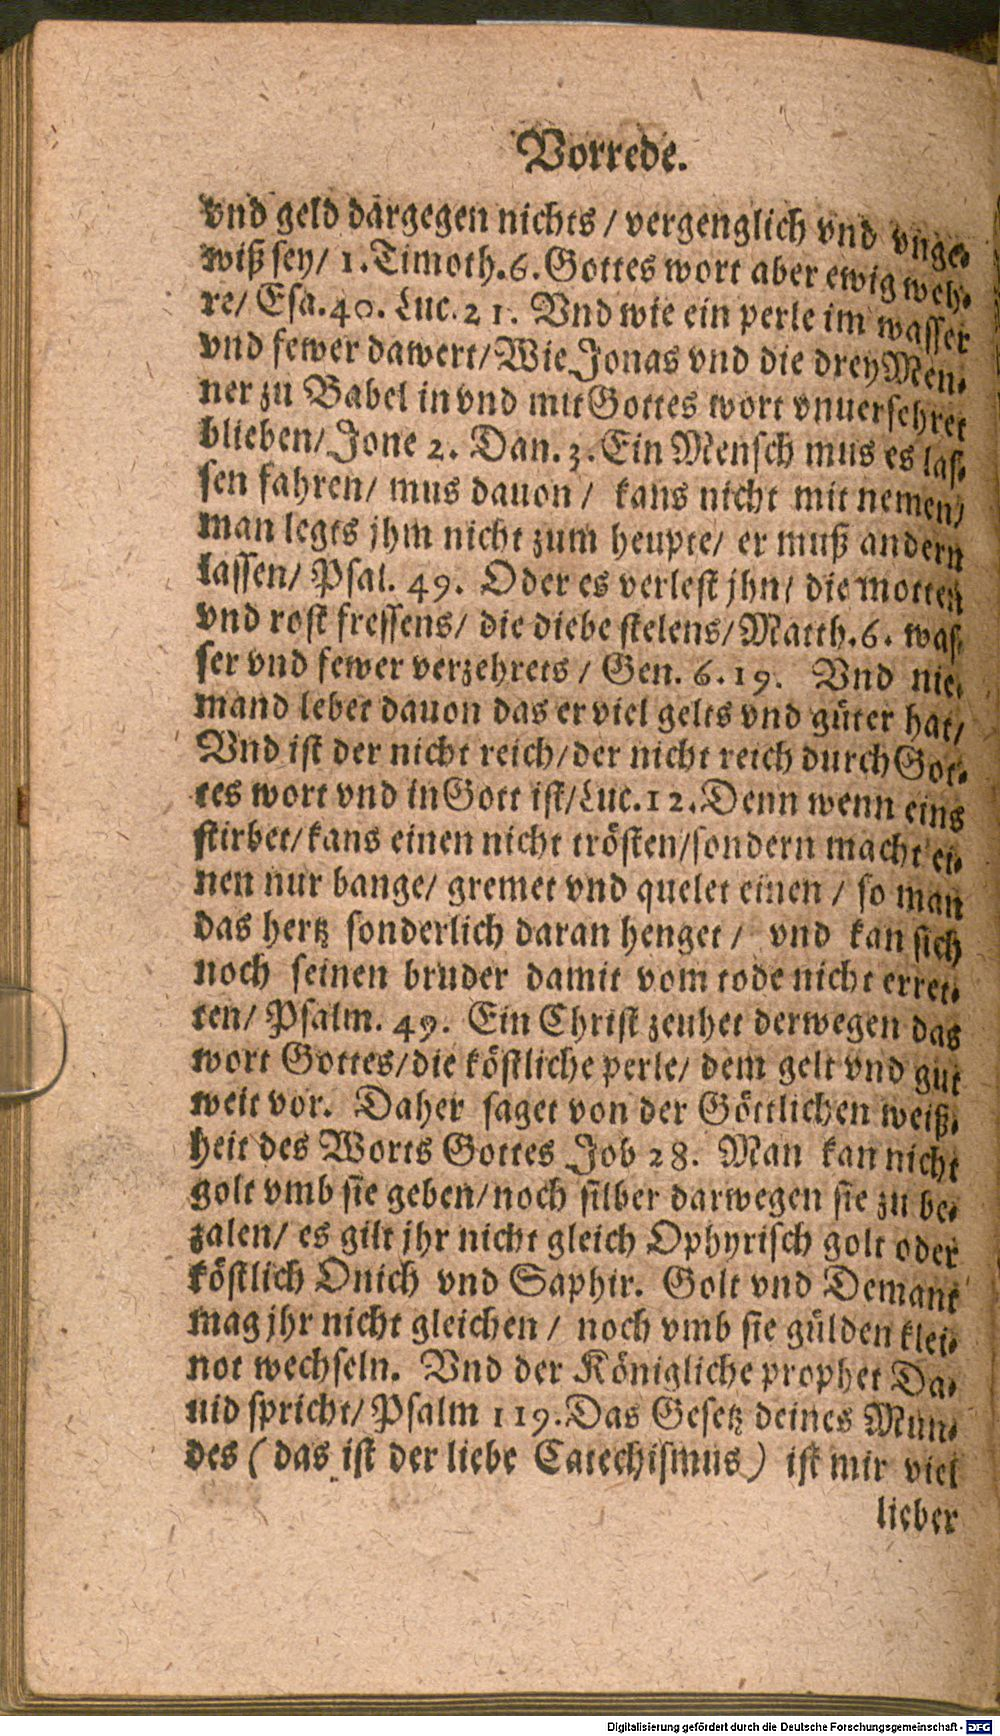 Vorrede.
vnd geld dargegen nichts / vergenglich vnd vnge-
wiß sey/ 1. Timoth. 6. Gottes wort aber ewig weh-
re/ Esa. 40. Luc. 21. Vnd wie ein perle im wasser
vnd fewer dawert/ Wie Jonas vnd die drey Men-
ner zu Babel in vnd mit Gottes wort vnuersehret
blieben/ Jone 2. Dan. 3. Ein Mensch mus es las-
sen fahren/ mus dauon / kans nicht mit nemen/
man legts jhm nicht zum heupte/ er muß andern
lassen/ Psal. 49. Oder es verlest jhn/ die motten
vnd rost fressens/ die diebe stelens/ Matth. 6. was-
ser vnd fewer verzehrets / Gen. 6. 19. Vnd nie-
mand lebet dauon das er viel gelts vnd güter hat/
Vnd ist der nicht reich/ der nicht reich durch Got-
tes wort vnd in Gott ist/ Luc. 12. Denn wenn eins
stirbet/ kans einen nicht trösten/ sondern macht ei-
nen nur bange/ gremet vnd quelet einen / so man
das hertz sonderlich daran henget / vnd kan sich
noch seinen bruder damit vom tode nicht erret-
ten/ Psalm. 49. Ein Christ zeuhet derwegen das
wort Gottes/ die köstliche perle/ dem gelt vnd gut
weit vor. Daher saget von der Göttlichen weiß-
heit des Worts Gottes Job 28. Man kan nicht
golt vmb sie geben/ noch silber darwegen sie zu be-
zalen/ es gilt jhr nicht gleich Ophyrisch golt oder
köstlich Onich vnd Saphir. Golt vnd Demant
mag jhr nicht gleichen / noch vmb sie gülden klei-
not wechseln. Vnd der Königliche prophet Da-
uid spricht/ Psalm 119. Das Gesetz deines Mun-
des ( das ist der liebe Catechismus ) ist mir viel
lieber
Digitalisierung gefördert durch die Deutsche Forschungsgemeinschaft - DFG